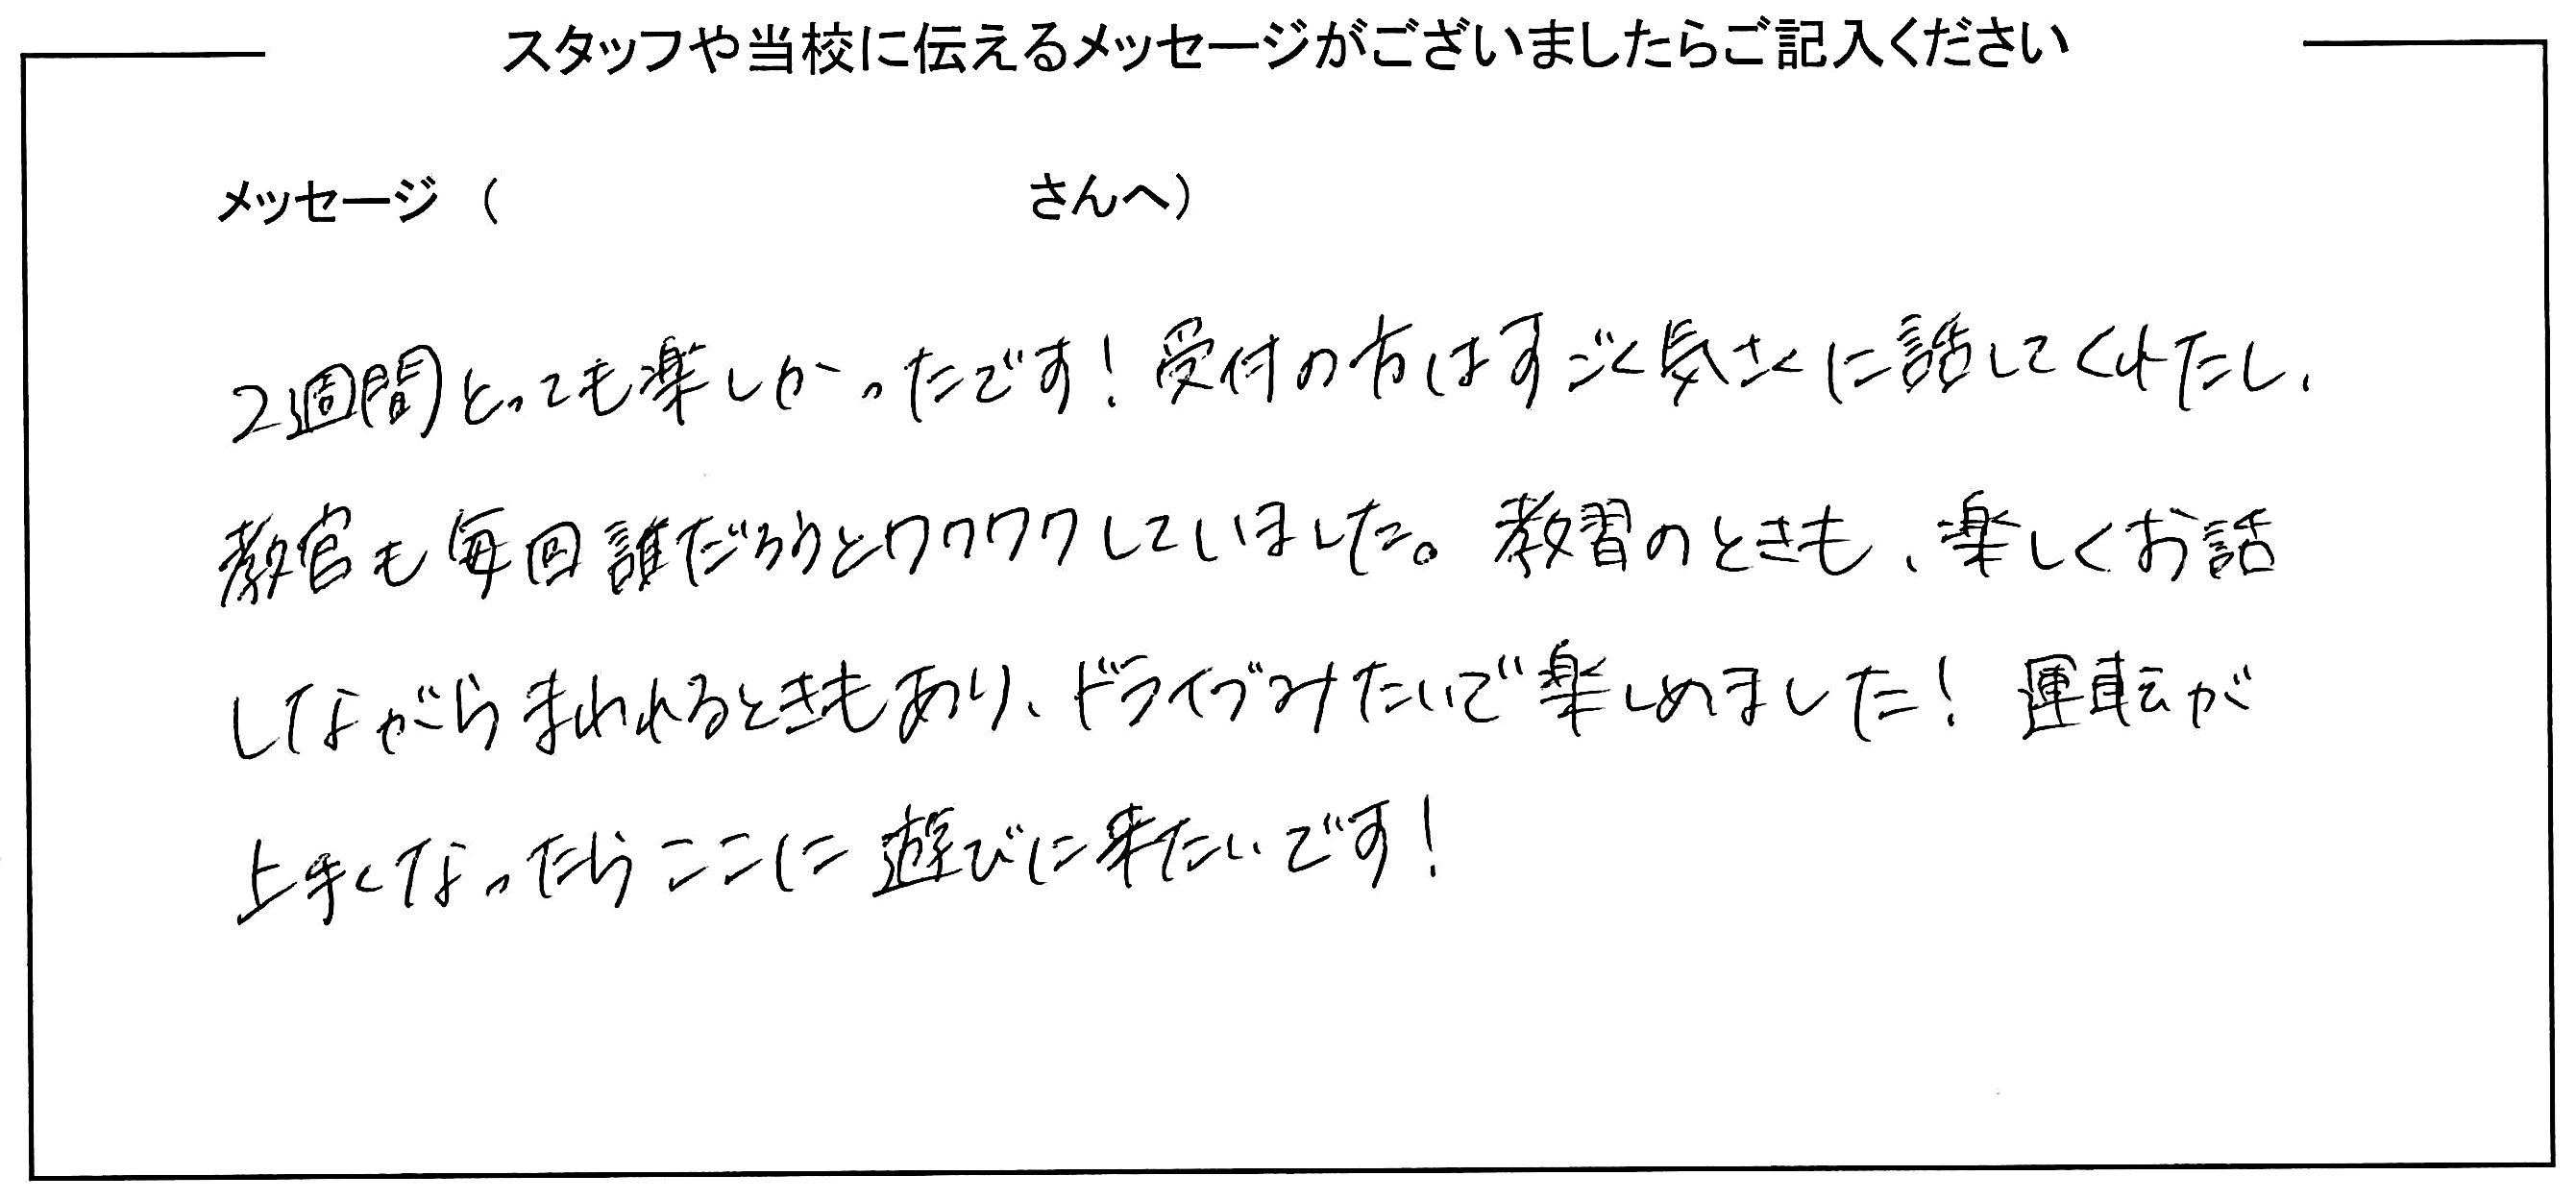 スタッフや当校に伝えるメッセージがございましたらご記入ください
メッセージ（　　　　　　　　　　さんへ）
2週間とっても楽しかったです！受付の方はすごく気さくに話してくれたし、
教官も毎回誰だろうとワクワクしていました。教習のときも、楽しくお話
しながらまわれるときもあり、ドライブみたいで楽しめました！運転が
上手くなったらここに遊びに来たいです！